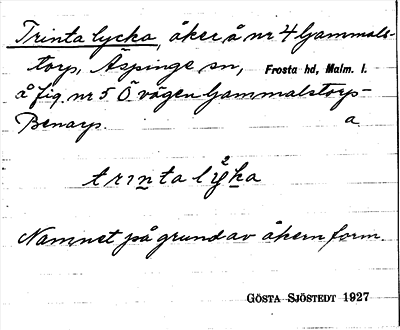 Trinta lycka, åker å nr 4 Gammals-
torp, Äspinge sn, Frosta hd, Malm. l.
å fig. nr 5 Ö vägen Gammalstorp-
Benarp. a.
trintalyka
Namnet på grund av åkern form.
GÖSTA SJÖSTEDT 1927